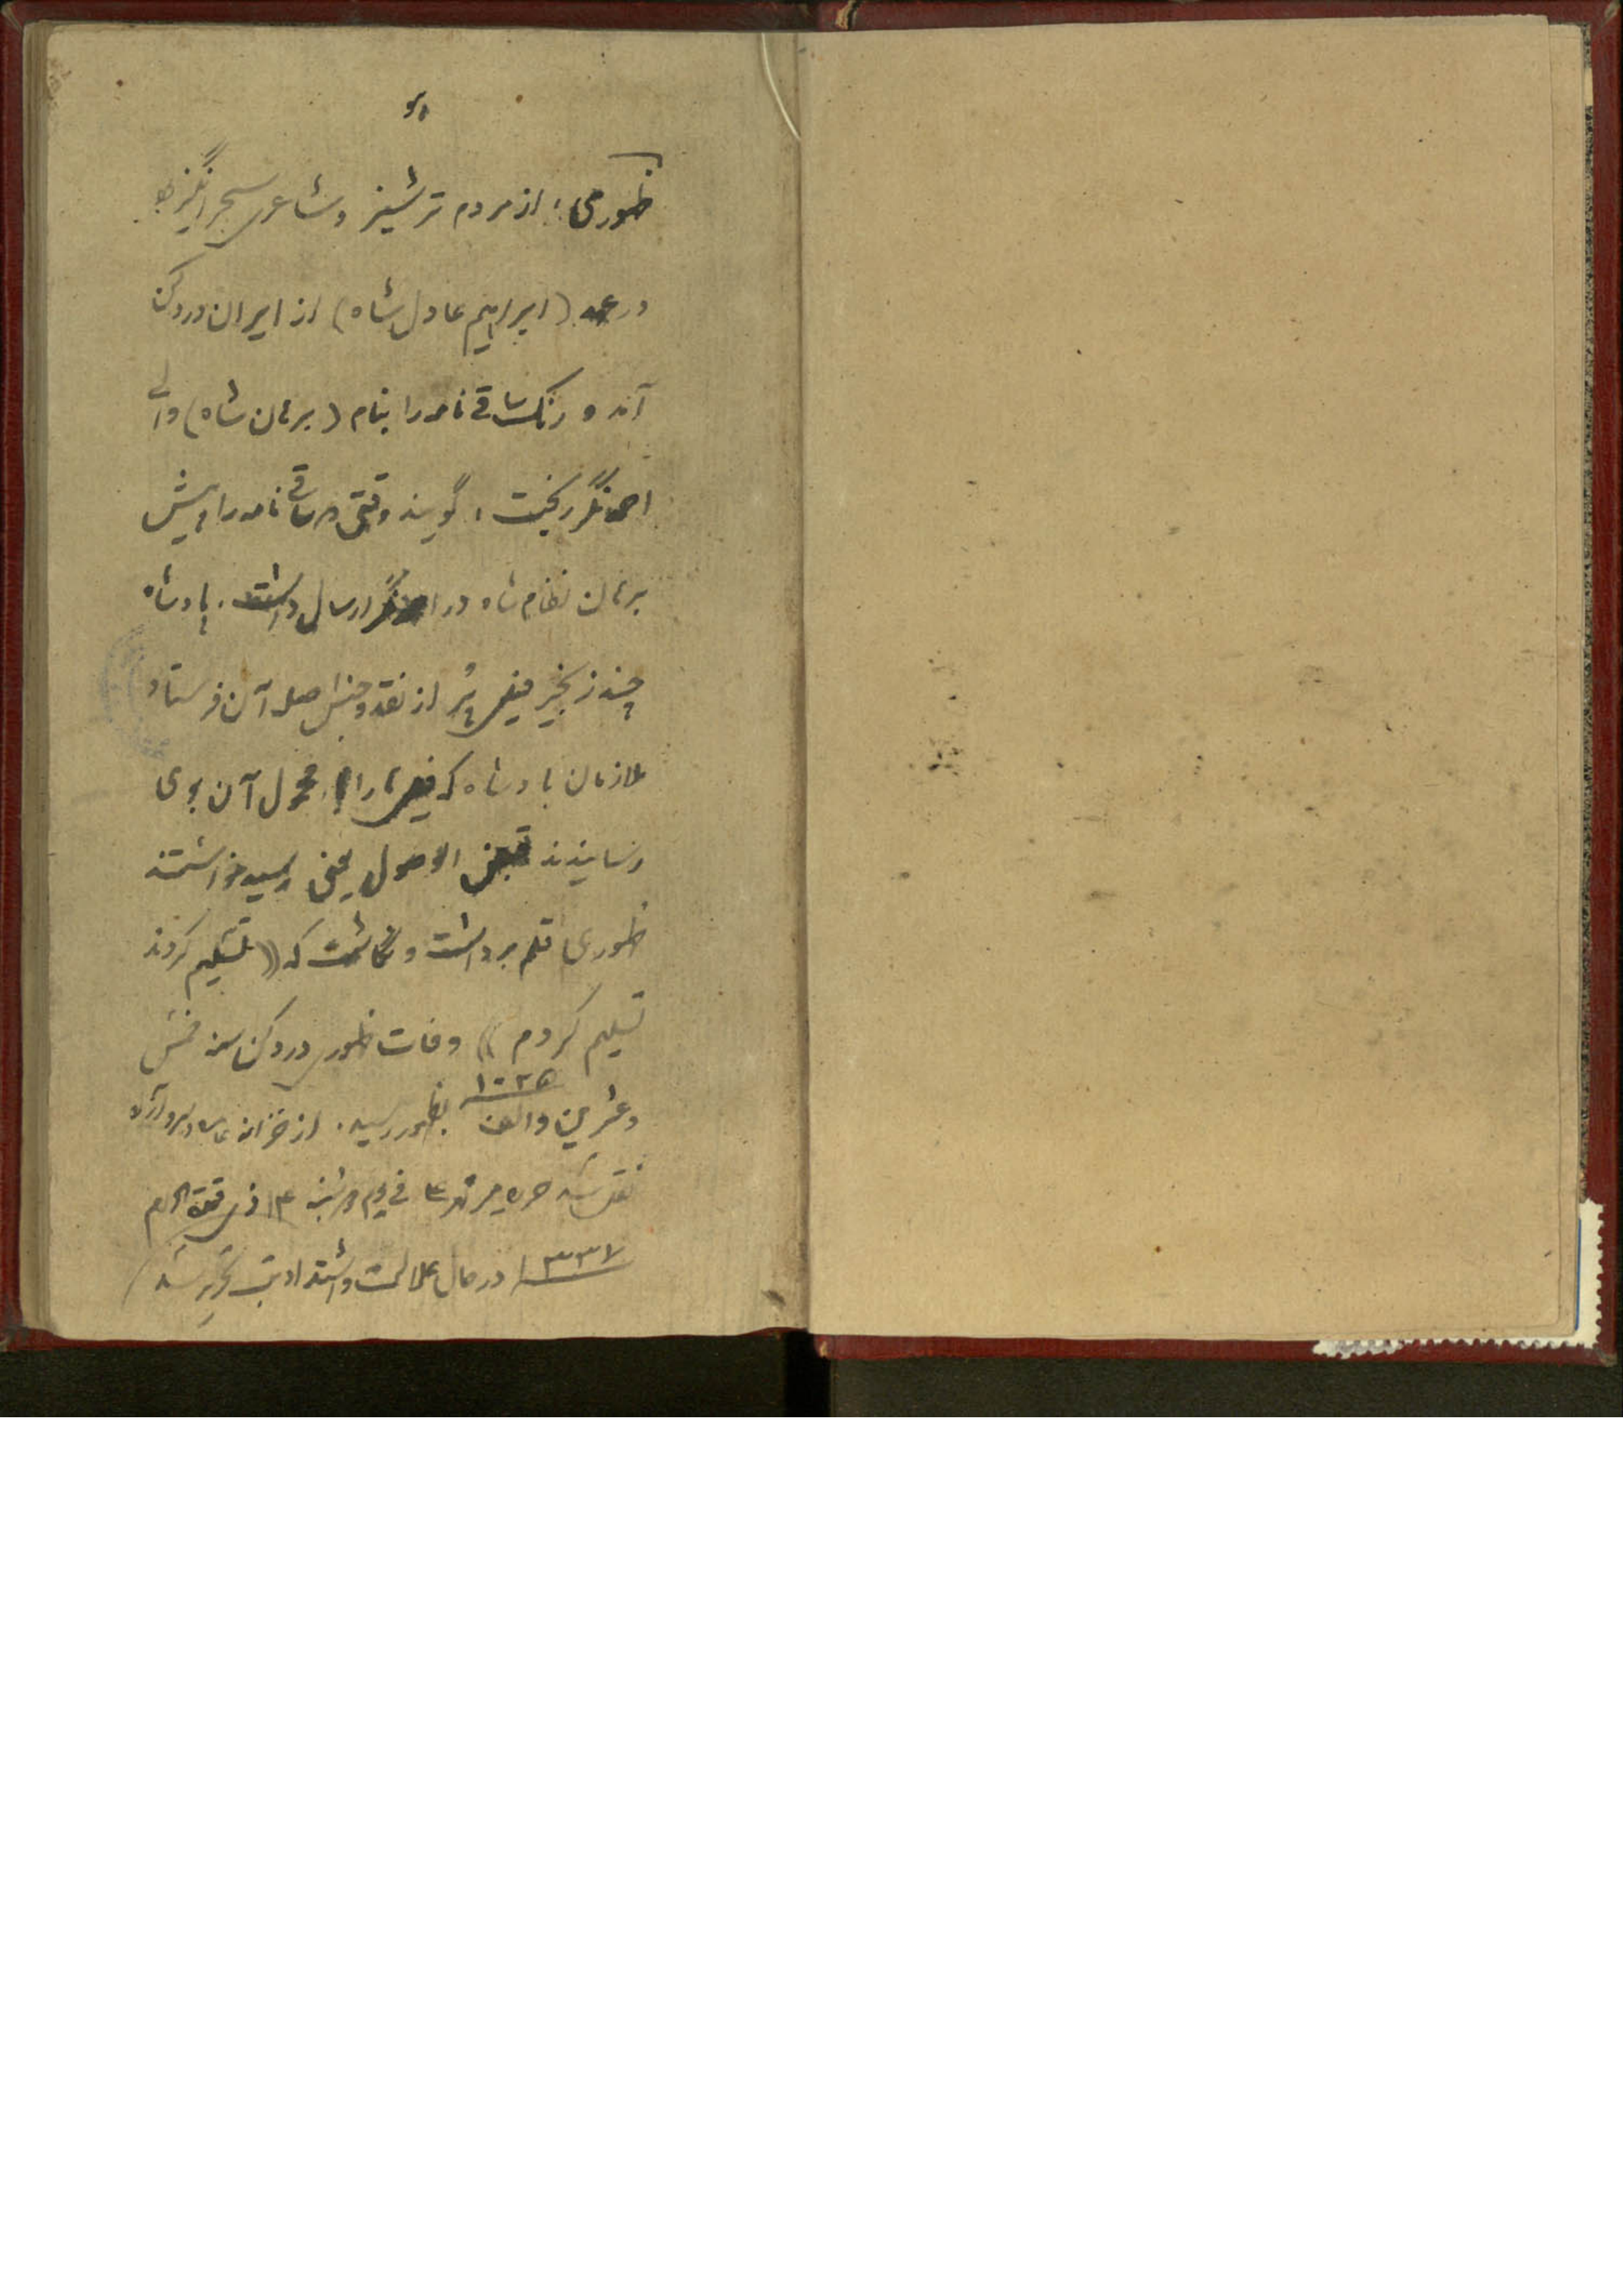 هو
ظهوری: از مردم ترشیز و شاعری سحرانگیز
در عهد (ابراهیم عادل شاه) از ایران در دکن
آمد و رنگ ساقی نامه را بنام (برهان شاه) والی
احمدنگر ریخت، گویند وقتی که ساقی نامه را پیش
برهان نظام شاه در احمدنگر ارسال داشت. پادشاه
چند زنجیر فیل پُر از نقد و جنس صله آن فرستاد
ملازمان پادشاه که فیل را با محمول آن بوی
رسانیدند قبض الوصول یعنی رسید خواستند
ظهوری قلم برداشت و نگاشت که ((تسلیم کردند
تسلیم کردم)) وفات ظهوری در دکن سنه خمس
وعشرین والف ۱۰۲۵ بظهور رسید. از خزانه عامره آزاد
نقل شد فی یوم ۱۳ ذی قعده الحرام
۱۳۳۷ در حال علالت و اشتداد تب تحریر شد